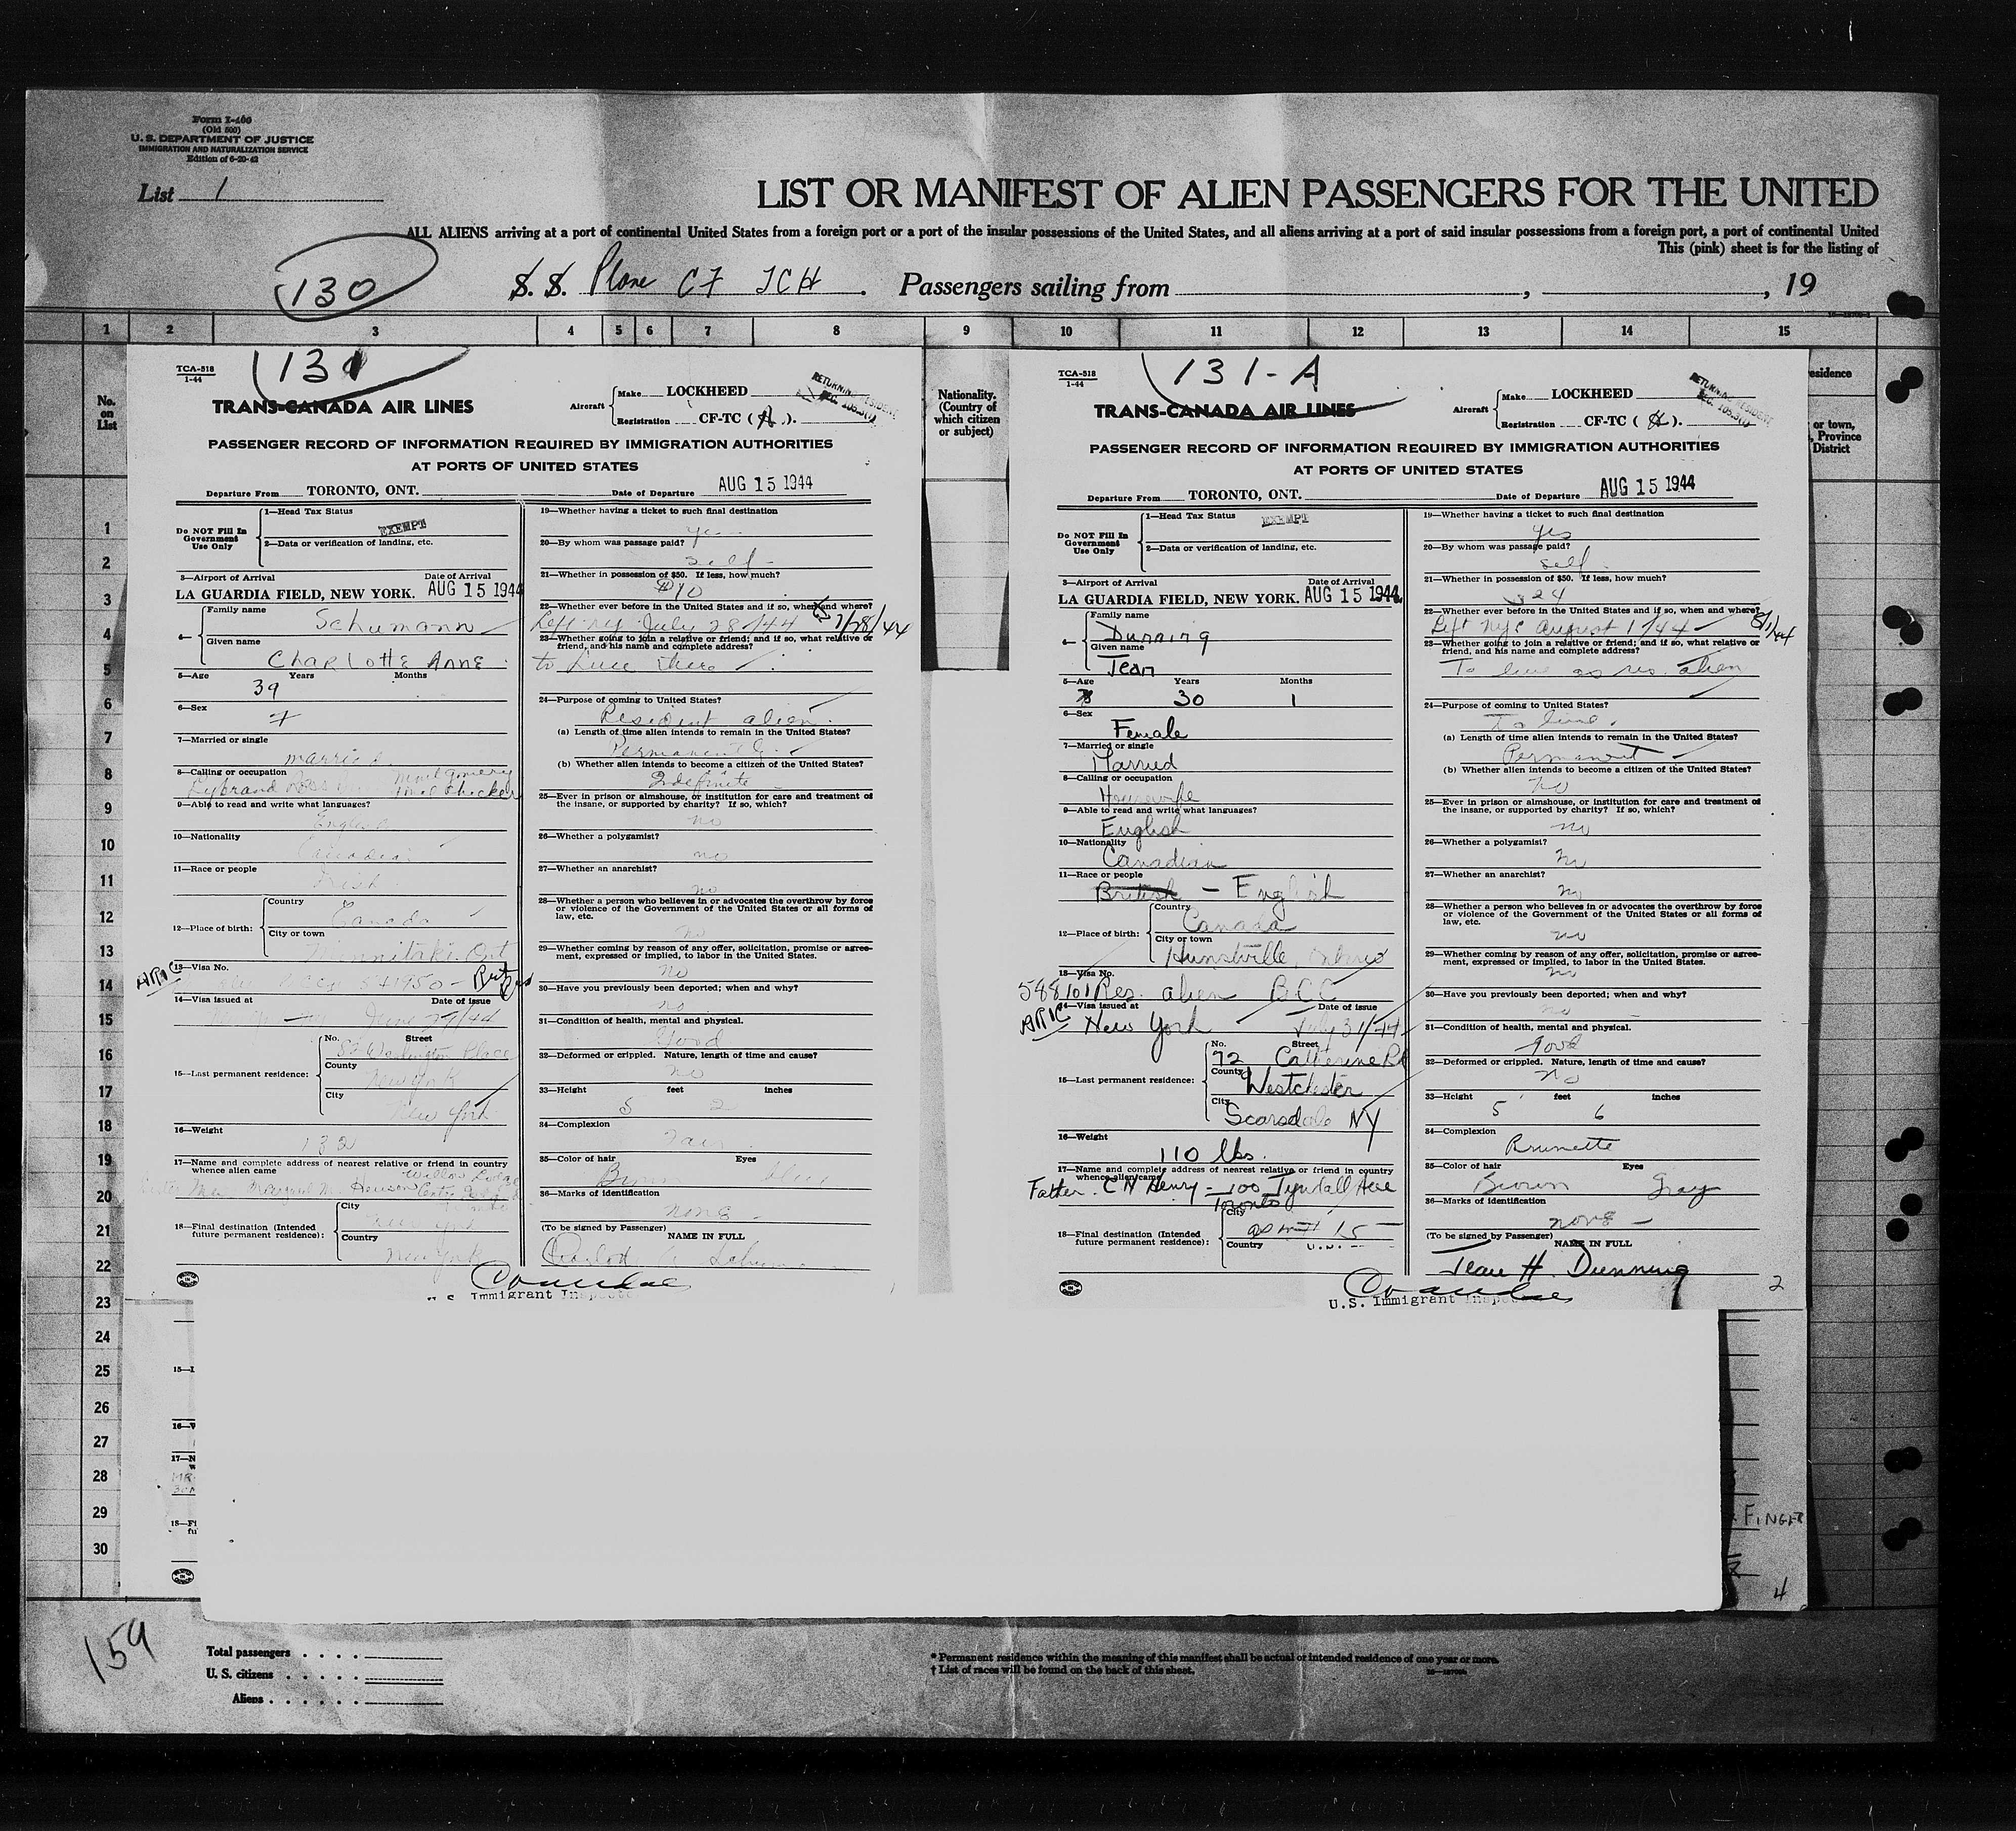 Form I-400
(Old 500)
U. S. DEPARTMENT OF JUSTICE
IMMIGRATION AND NATURALIZATION SERVICE
Edition of 6-20-42
List 1
LIST OR MANIFEST OF ALIEN PASSENGERS FOR THE UNITED
ALL ALIENS arriving at a port of continental United States from a foreign port or a port of the insular possessions of the United States, and all aliens arriving at a port of said insular possessions from a foreign port, a port of continental United
This (pink) sheet is for the listing of
130
S. S. Plane CF TCH. Passengers sailing from , , 19
1 2 3 4 5 6 7 8 9 10 11 12 13 14 15
No. on List
Nationality. (Country of which citizen or subject)
esidence
or town,
, Province
District
1
2
3
4
5
6
7
8
9
10
11
12
13
14
15
16
17
18
19
20
21
22
23
24
25
26
27
28
29
30
TCA-518
1-44
131
TRANS-CANADA AIR LINES
Aircraft Make LOCKHEED
Registration CF-TC ( H ).
RETURNING RESIDENT
PASSENGER RECORD OF INFORMATION REQUIRED BY IMMIGRATION AUTHORITIES
AT PORTS OF UNITED STATES
Departure From TORONTO, ONT. Date of Departure AUG 15 1944
Do NOT Fill In Government Use Only
1—Head Tax Status EXEMPT
2—Data or verification of landing, etc.
3—Airport of Arrival Date of Arrival
LA GUARDIA FIELD, NEW YORK. AUG 15 1944
4— Family name Schumann
Given name Charlotte Anne
5—Age Years Months
39
6—Sex
F
7—Married or single
married
8—Calling or occupation
Montgomery
9—Able to read and write what languages?
English
10—Nationality
Canadian
11—Race or people
Irish
12—Place of birth: Country
Canada
City or town
Ont
ARIC
13—Visa No.
14—Visa issued at Date of issue
June 29/44
15—Last permanent residence: No. Street
Washington Place
County
New York
City
New York
16—Weight
132
17—Name and complete address of nearest relative or friend in country whence alien came
18—Final destination (Intended future permanent residence): City
New York
Country
New York
19—Whether having a ticket to such final destination
yes
20—By whom was passage paid?
self
21—Whether in possession of $50. If less, how much?
$10
22—Whether ever before in the United States and if so, when and where?
Left NY July 28/44 7/28/44
23—Whether going to join a relative or friend; and if so, what relative or friend, and his name and complete address?
to live there
24—Purpose of coming to United States?
Resident alien.
(a) Length of time alien intends to remain in the United States?
Permanently
(b) Whether alien intends to become a citizen of the United States?
Indefinite
25—Ever in prison or almshouse, or institution for care and treatment of the insane, or supported by charity? If so, which?
no
26—Whether a polygamist?
no
27—Whether an anarchist?
no
28—Whether a person who believes in or advocates the overthrow by force or violence of the Government of the United States or all forms of law, etc.
no
29—Whether coming by reason of any offer, solicitation, promise or agreement, expressed or implied, to labor in the United States.
no
30—Have you previously been deported; when and why?
no
31—Condition of health, mental and physical.
Good
32—Deformed or crippled. Nature, length of time and cause?
no
33—Height feet inches
5 2
34—Complexion
Fair
35—Color of hair Eyes
Blue
36—Marks of identification
none
(To be signed by Passenger) NAME IN FULL
U.S. Immigrant Inspector
TCA-518
1-44
131-A
TRANS-CANADA AIR LINES
Aircraft Make LOCKHEED
Registration CF-TC ( H ).
RETURNING RESIDENT
PASSENGER RECORD OF INFORMATION REQUIRED BY IMMIGRATION AUTHORITIES
AT PORTS OF UNITED STATES
Departure From TORONTO, ONT. Date of Departure AUG 15 1944
Do NOT Fill In Government Use Only
1—Head Tax Status EXEMPT
2—Data or verification of landing, etc.
3—Airport of Arrival Date of Arrival
LA GUARDIA FIELD, NEW YORK. AUG 15 1944
4— Family name
Dunning
Given name
Jean
5—Age Years Months
30 1
6—Sex
Female
7—Married or single
Married
8—Calling or occupation
Housewife
9—Able to read and write what languages?
English
10—Nationality
Canadian
11—Race or people
British - English
12—Place of birth: Country
Canada
City or town
Hunstville, Ontario
13—Visa No.
588101 Res. alien BCC
14—Visa issued at Date of issue
ARIC New York July 31/44
15—Last permanent residence: No. Street
72 Catherine Rd
County
Westchester
City
Scarsdale NY
16—Weight
110 lbs.
17—Name and complete address of nearest relative or friend in country whence alien came
Father. C N Henry - 100 Tyndall Ave
Toronto
18—Final destination (Intended future permanent residence): City
as in # 15
Country
19—Whether having a ticket to such final destination
yes
20—By whom was passage paid?
self
21—Whether in possession of $50. If less, how much?
24
22—Whether ever before in the United States and if so, when and where?
Left NYC August 1/44 8/1/44
23—Whether going to join a relative or friend; and if so, what relative or friend, and his name and complete address?
To live as res. alien
24—Purpose of coming to United States?
To live.
(a) Length of time alien intends to remain in the United States?
Permanent
(b) Whether alien intends to become a citizen of the United States?
No
25—Ever in prison or almshouse, or institution for care and treatment of the insane, or supported by charity? If so, which?
no
26—Whether a polygamist?
no
27—Whether an anarchist?
no
28—Whether a person who believes in or advocates the overthrow by force or violence of the Government of the United States or all forms of law, etc.
no
29—Whether coming by reason of any offer, solicitation, promise or agreement, expressed or implied, to labor in the United States.
no
30—Have you previously been deported; when and why?
no
31—Condition of health, mental and physical.
good
32—Deformed or crippled. Nature, length of time and cause?
no
33—Height feet inches
5' 6
34—Complexion
Brunette
35—Color of hair Eyes
Brown Gray
36—Marks of identification
none
(To be signed by Passenger) NAME IN FULL
Jean H. Dunning
U.S. Immigrant Inspector
2
FINGER
4
159
Total passengers . . . .
U. S. citizens . . . . .
Aliens . . . . . .
* Permanent residence within the meaning of this manifest shall be actual or intended residence of one year or more.
† List of races will be found on the back of this sheet.